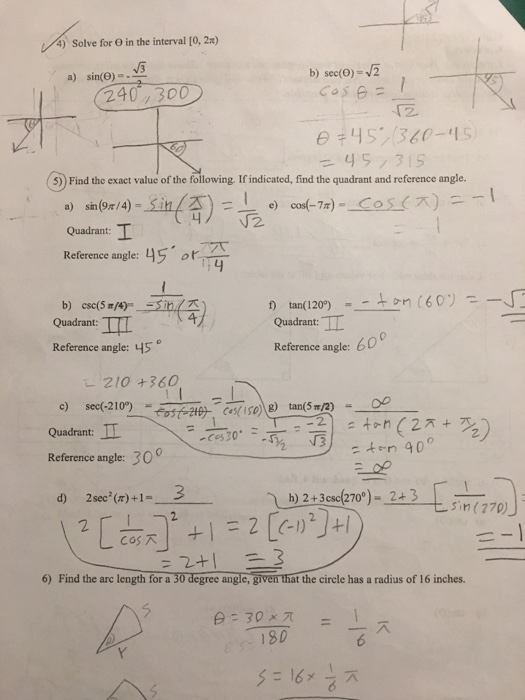 4) Solve for Θ in the interval [0, 2π)
a) sin(Θ) = -√3/2
240°, 300
60
b) sec(Θ) = √2
cos θ = 1/√2
θ = 45°, (360-45
= 45, 315
45
5) Find the exact value of the following. If indicated, find the quadrant and reference angle.
a) sin(9π/4) = sin(π/4) = 1/√2
Quadrant: I
Reference angle: 45° or π/4
e) cos(-7π) = cos(π) = -1
= -1
b) csc(5π/4)= 1/-sin(π/4)
Quadrant: III
Reference angle: 45°
f) tan(120°) = -tan(60°) = -√3
Quadrant: II
Reference angle: 60°
-210 +360
c) sec(-210°) = 1/cos(-210) = 1/cos(150)
= 1/-cos30° = 1/-√3/2 = -2/√3
Quadrant: II
Reference angle: 30°
g) tan(5π/2) = ∞
= tan(2π + π/2)
= tan 90°
= ∞
d) 2sec²(π)+1= 3
2[1/cosπ]² +1 = 2[(-1)²]+1
= 2+1 = 3
h) 2+3csc(270°)= 2+3[1/sin(270)]
= -1
6) Find the arc length for a 30 degree angle, given that the circle has a radius of 16 inches.
S
r
θ = 30 × π/180 = 1/6 π
S = 16 × 1/6 π
S